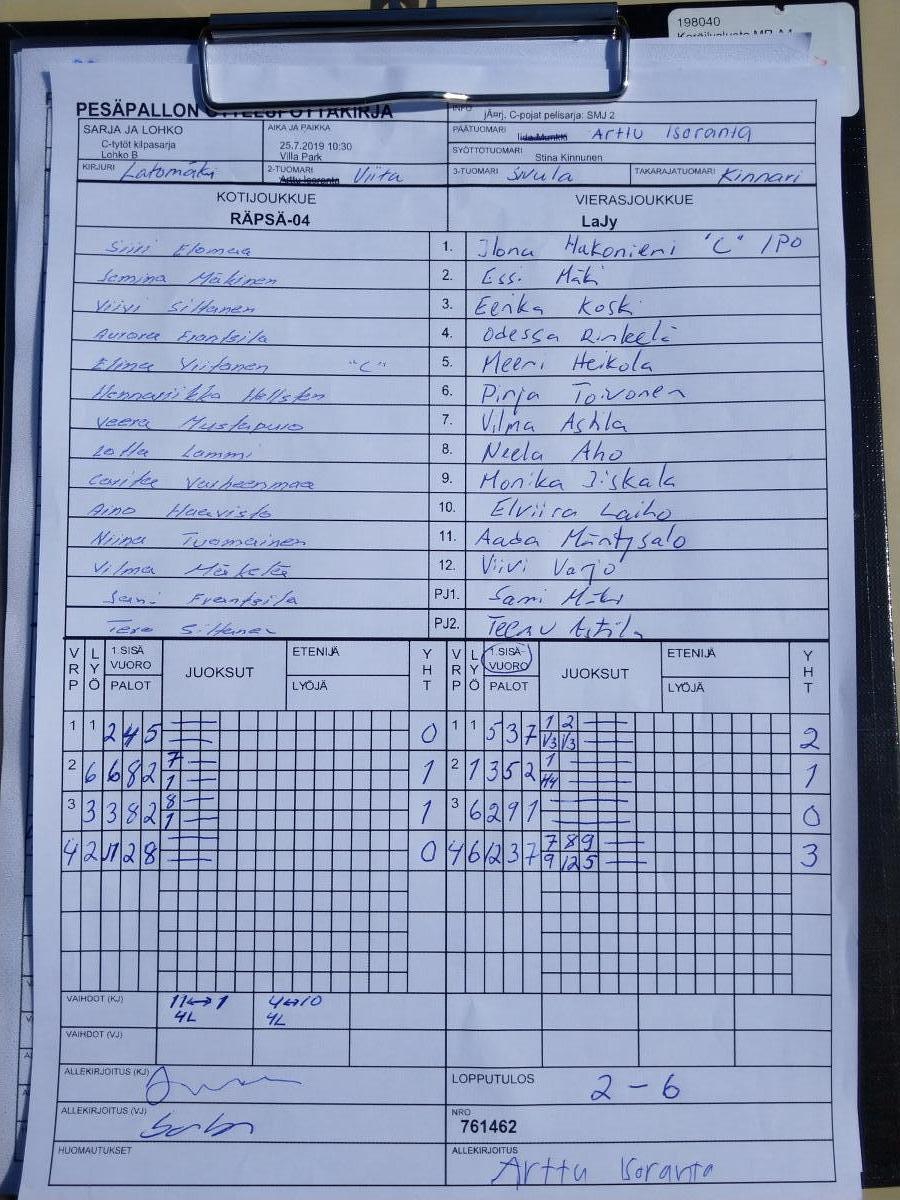 198040
PESÄPALLON OTTELUPÖYTÄKIRJA
INFO
jÄ¤rj. C-pojat pelisarja: SMJ 2
SARJA JA LOHKO
C-tytöt kilpasarja
Lohko B
AIKA JA PAIKKA
25.7.2019 10:30
Villa Park
PÄÄTUOMARI Iida Munkki Arttu Isoranta
SYÖTTÖTUOMARI
Stina Kinnunen
KIRJURI Latomäki
2-TUOMARI Arttu Isoranta Viita
3-TUOMARI Sivula
TAKARAJATUOMARI Kinnari
KOTIJOUKKUE
RÄPSÄ-04
VIERASJOUKKUE
LaJy
Siiri Elomaa 1. Ilona Hakoniemi "C" /PO
Jemina Mäkinen 2. Essi Mäki
Viivi Siltanen 3. Eerika Koski
Aurora Frantsila 4. Odessa Rinkelä
Elina Viitanen "C" 5. Meeri Heikola
Hennariikka Hellsten 6. Pinja Toivonen
Veera Mustapuro 7. Vilma Astila
Lotta Lammi 8. Neela Aho
Varheenmaa 9. Monika Iiskala
Aino Haavisto 10. Elviira Laiho
Niina Tuomainen 11. Aada Mäntysalo
Vilma Mäkelä 12. Viivi Varjo
Sani Frantsila PJ1. Sami Mäki
Tero Siltanen PJ2. Teemu Astila
VRP LYÖ 1.SISÄ VUORO PALOT JUOKSUT ETENIJÄ LYÖJÄ YHT
VRP LYÖ 1.SISÄ VUORO PALOT JUOKSUT ETENIJÄ LYÖJÄ YHT
1 1 2 4 5 0 1 1 5 3 7 1 2 1/3 1/3 2
2 6 6 8 2 7 1 1 2 1 3 5 2 1 H4 1
3 3 3 8 2 8 1 1 3 6 2 9 1 0
4 2 11 2 8 0 4 6 12 3 7 7 8 9 9 12 5 3
VAIHDOT (KJ) 11↔1 4↔10
4L 4L
VAIHDOT (VJ)
ALLEKIRJOITUS (KJ)
LOPPUTULOS 2 - 6
ALLEKIRJOITUS (VJ)
NRO
761462
HUOMAUTUKSET
ALLEKIRJOITUS
Arttu Isoranta